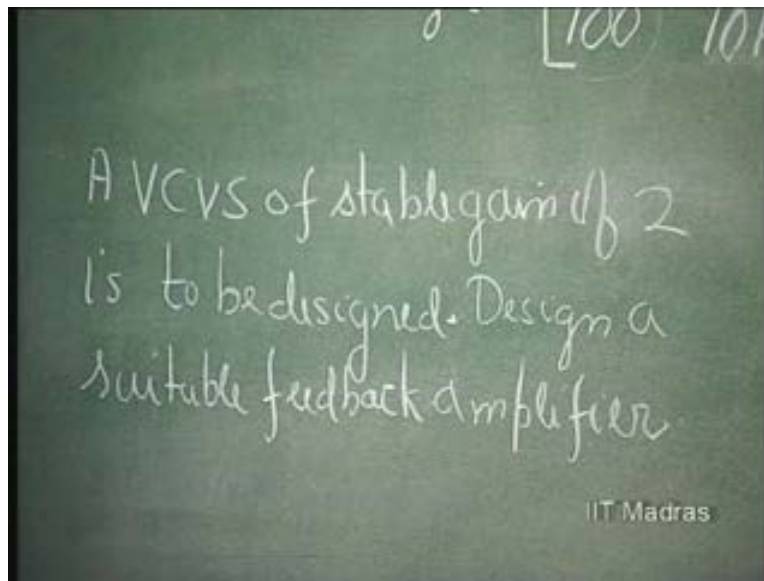 [100 101
A VCVS of stable gain of 2
is to be designed. Design a
suitable feedback amplifier
IIT Madras